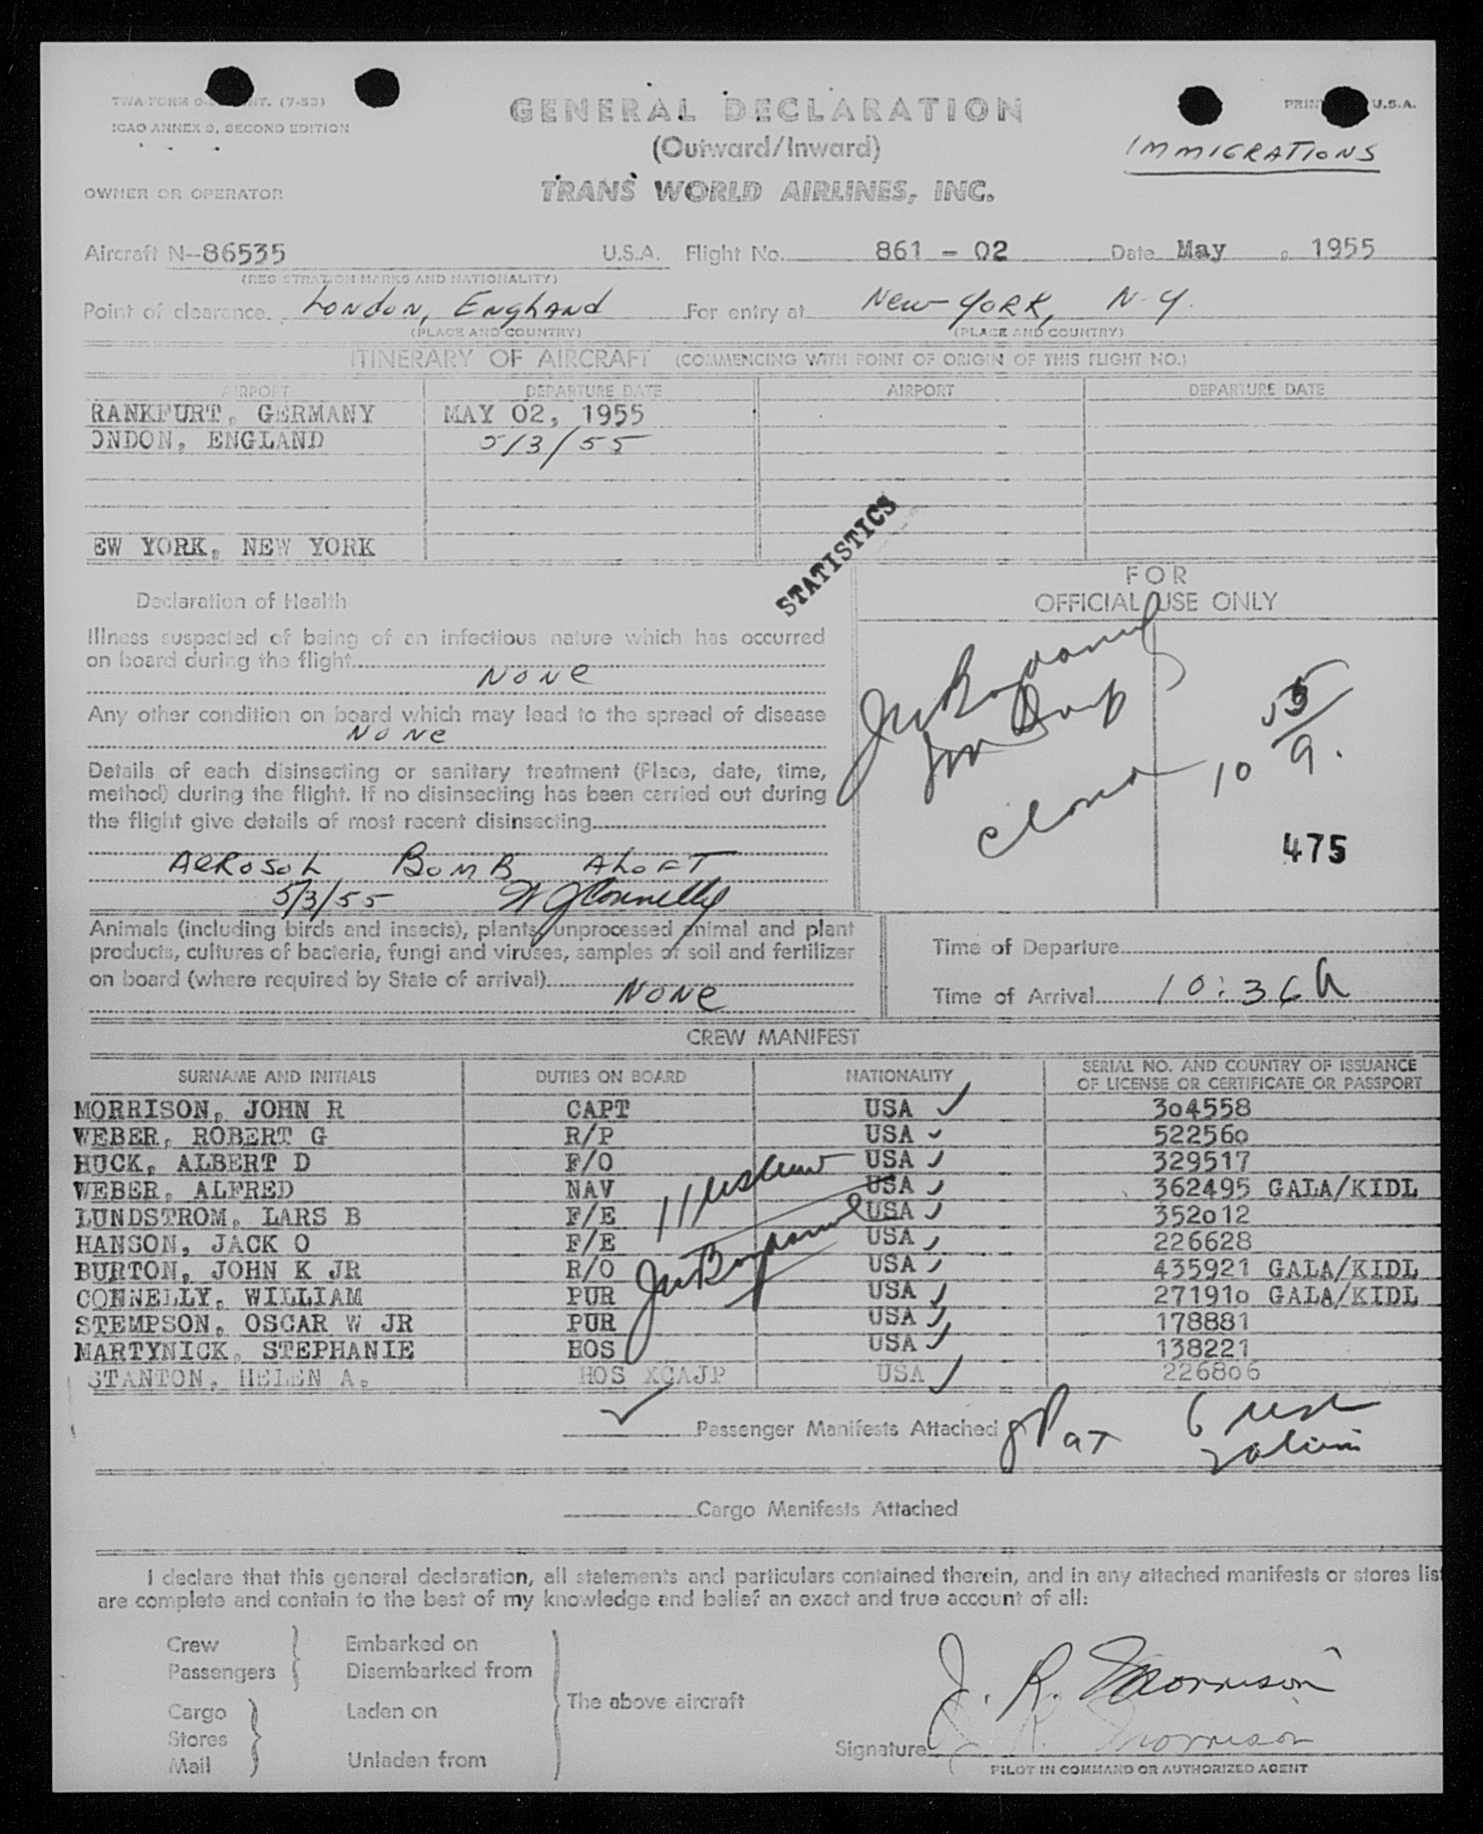 TWA FORM INT. (7-53)
ICAO ANNEX 9, SECOND EDITION
GENERAL DECLARATION
(Outward/Inward)
TRANS WORLD AIRLINES, INC.
U.S.A.
IMMIGRATIONS
OWNER OR OPERATOR
Aircraft N-86535 U.S.A. Flight No. 861 - 02 Date May , 1955
(REGISTRATION MARKS AND NATIONALITY)
Point of clearance London, England For entry at New York, N.Y.
(PLACE AND COUNTRY) (PLACE AND COUNTRY)
ITINERARY OF AIRCRAFT (COMMENCING WITH POINT OF ORIGIN OF THIS FLIGHT NO.)
AIRPORT DEPARTURE DATE AIRPORT DEPARTURE DATE
RANKFURT, GERMANY MAY 02, 1955
ONDON, ENGLAND 5/3/55
EW YORK, NEW YORK
STATISTICS
Declaration of Health
Illness suspected of being of an infectious nature which has occurred
on board during the flight
None
Any other condition on board which may lead to the spread of disease
None
Details of each disinsecting or sanitary treatment (Place, date, time,
method) during the flight. If no disinsecting has been carried out during
the flight give details of most recent disinsecting
AEROSOL BOMB ALOFT
5/3/55 W J Connelly
FOR
OFFICIAL USE ONLY
475
Animals (including birds and insects), plants, unprocessed animal and plant
products, cultures of bacteria, fungi and viruses, samples of soil and fertilizer
on board (where required by State of arrival)
None
Time of Departure
Time of Arrival 10:36 A
CREW MANIFEST
SURNAME AND INITIALS DUTIES ON BOARD NATIONALITY SERIAL NO. AND COUNTRY OF ISSUANCE
OF LICENSE OR CERTIFICATE OR PASSPORT
MORRISON, JOHN R CAPT USA 304558
WEBER, ROBERT G R/P USA 522560
HUCK, ALBERT D F/O USA 329517
WEBER, ALFRED NAV USA 362495 GALA/KIDL
LUNDSTROM, LARS B F/E USA 352012
HANSON, JACK O F/E USA 226628
BURTON, JOHN K JR R/O USA 435921 GALA/KIDL
CONNELLY, WILLIAM PUR USA 271910 GALA/KIDL
STEMPSON, OSCAR W JR PUR USA 178881
MARTYNICK, STEPHANIE HOS USA 138221
STANTON, HELEN A. HOS XCAJP USA 226806
Passenger Manifests Attached
Cargo Manifests Attached
I declare that this general declaration, all statements and particulars contained therein, and in any attached manifests or stores list
are complete and contain to the best of my knowledge and belief an exact and true account of all:
Crew Embarked on
Passengers Disembarked from
The above aircraft
Cargo Laden on
Stores
Mail Unladen from
J. R. Morrison
Signature J. R. Morrison
PILOT IN COMMAND OR AUTHORIZED AGENT